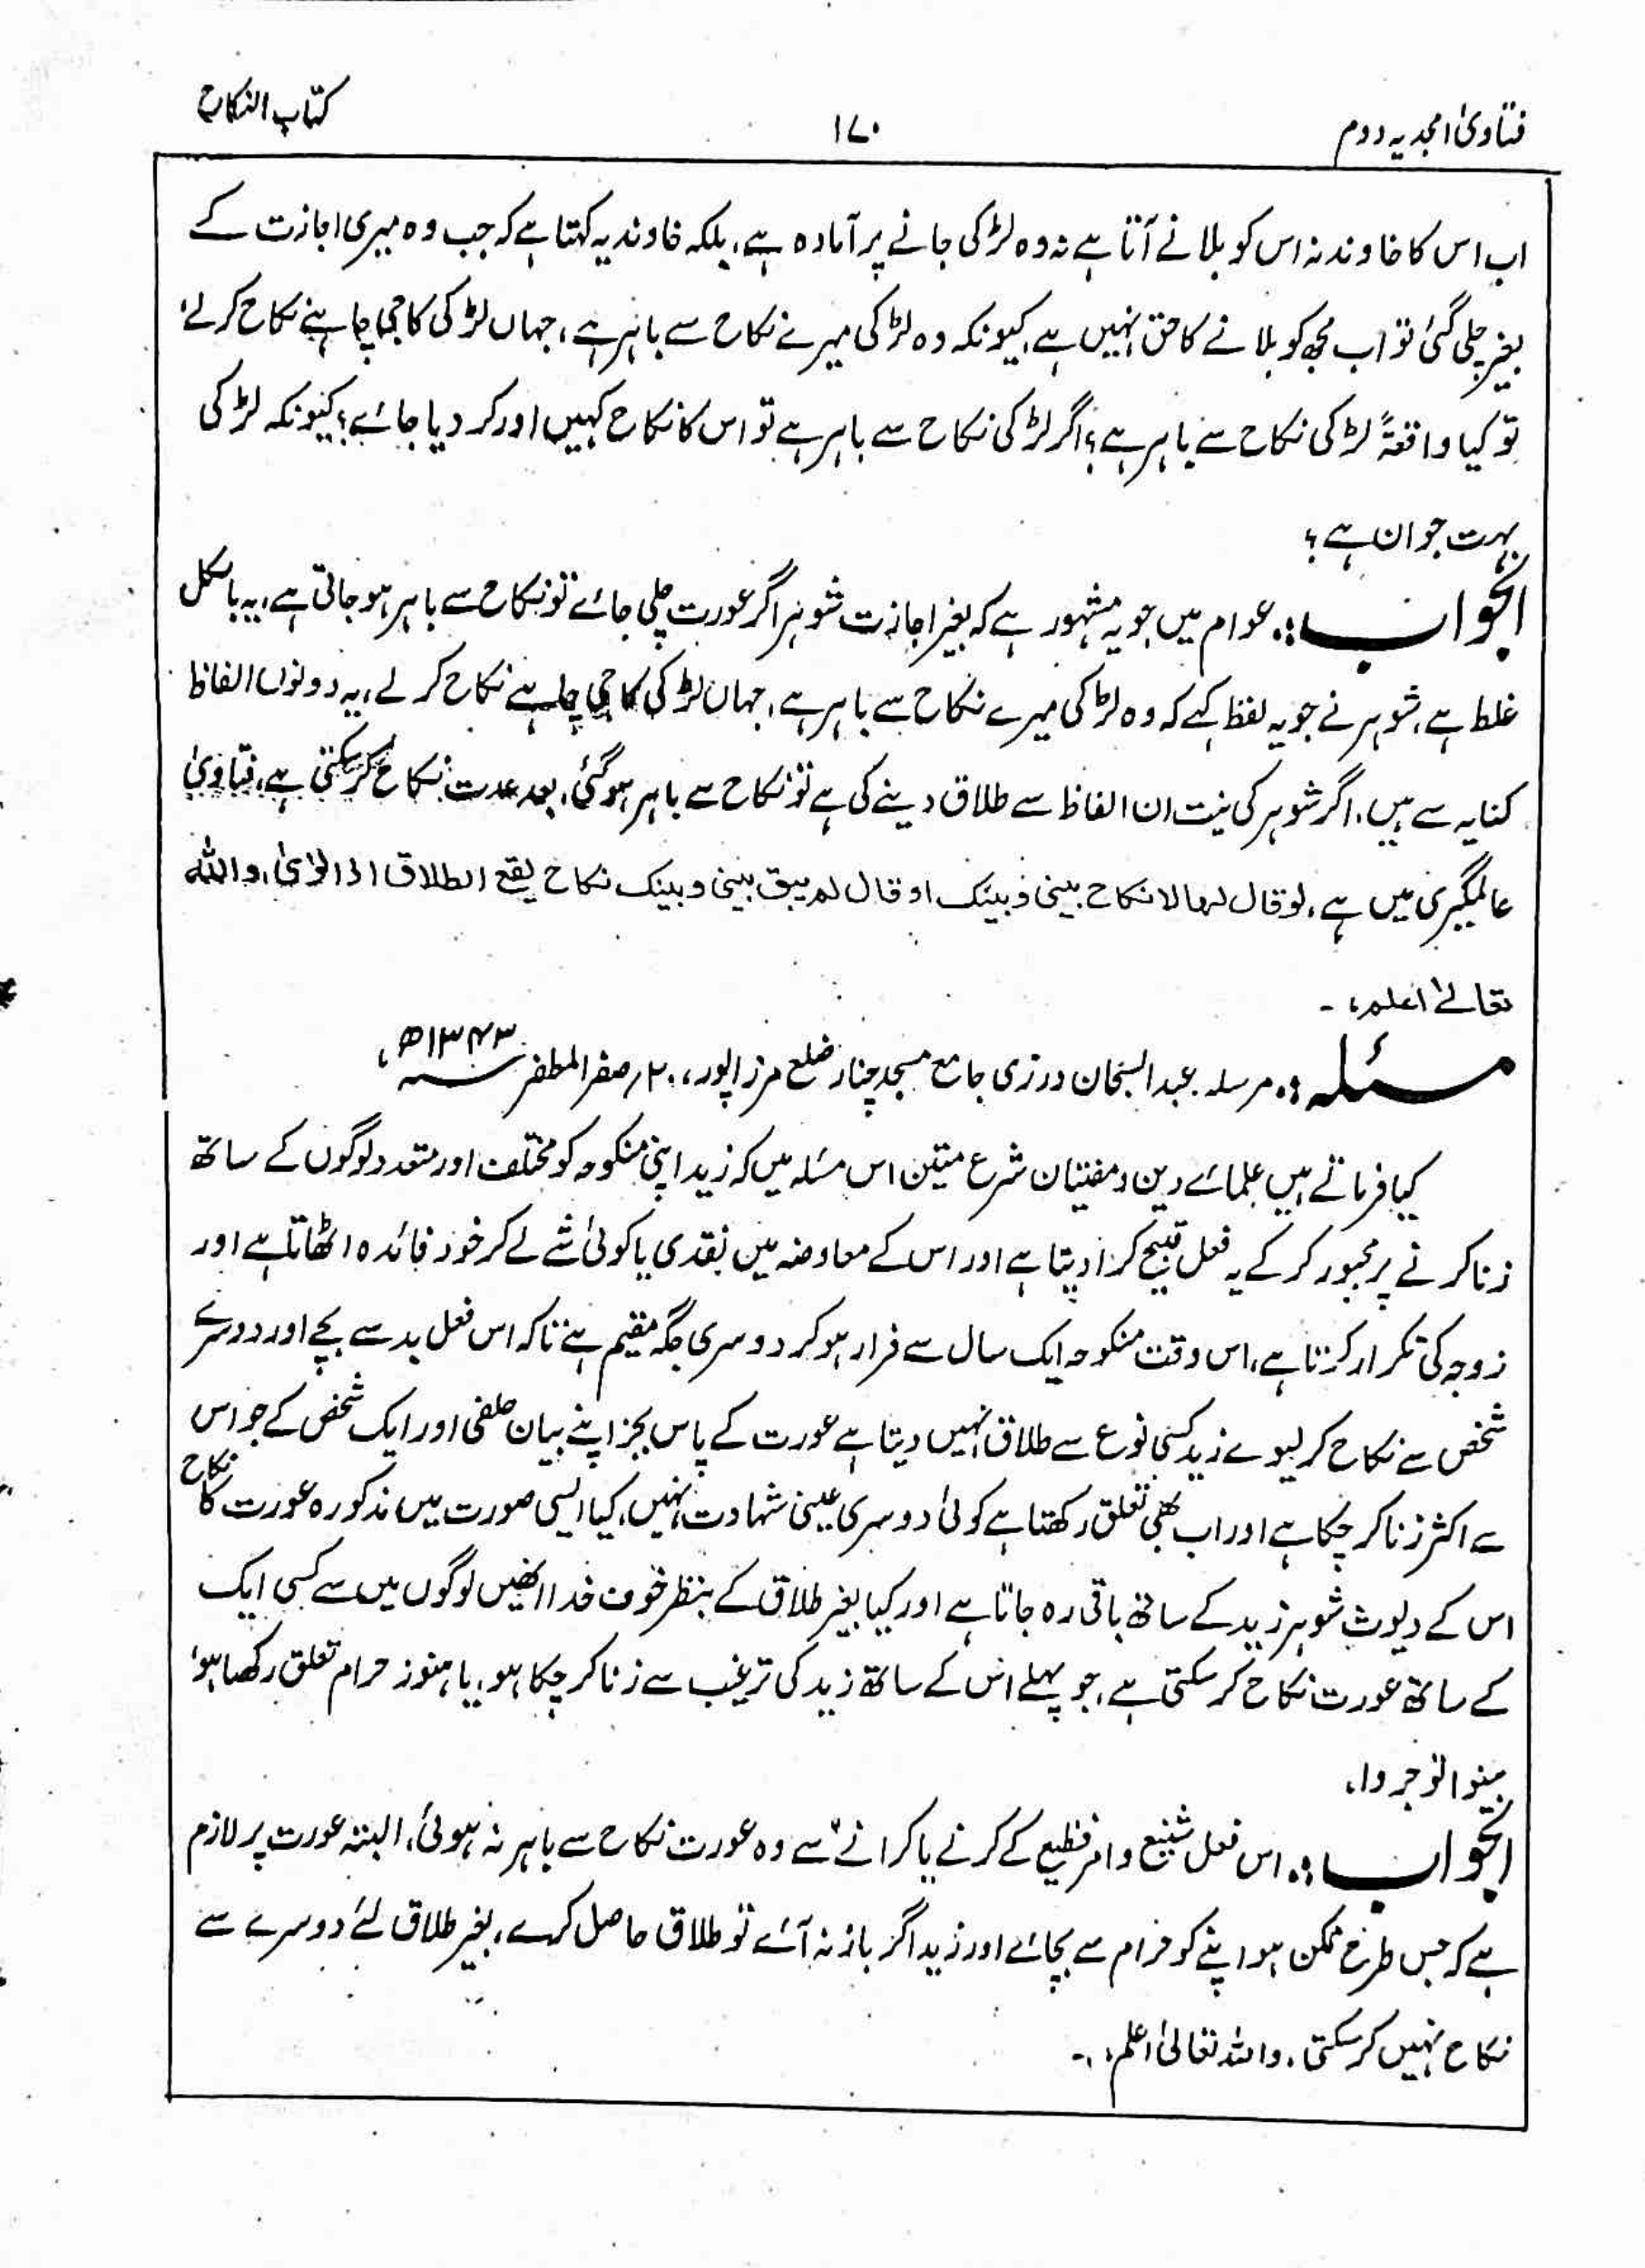 فتاویٰ امجدیہ دوم
۱۷۰
کتاب النکاح
اب اس کا خاوند نہ اس کو بلانے آتا ہے نہ وہ لڑکی جانے پر آمادہ ہے، بلکہ خاوند یہ کہتا ہے کہ جب وہ میری اجازت کے
بغیر چلی گئی تو اب مجھ کو بلانے کا حق نہیں ہے، کیونکہ وہ لڑکی میرے نکاح سے باہر ہے، جہاں لڑکی کا جی چاہے نکاح کرلے،
تو کیا واقعۃً لڑکی نکاح سے باہر ہے؟ اگر لڑکی نکاح سے باہر ہے تو اس کا نکاح کہیں اور کر دیا جائے؟ کیونکہ لڑکی
بہت جوان ہے؟
الجواب:۔ عوام میں جو یہ مشہور ہے کہ بغیر اجازت شوہر اگر عورت چلی جائے تو نکاح سے باہر ہو جاتی ہے، یہ بالکل
غلط ہے، شوہر نے جو یہ لفظ کہے کہ وہ لڑکی میرے نکاح سے باہر ہے، جہاں لڑکی کا جی چاہے نکاح کرلے، یہ دونوں الفاظ
کنایہ سے ہیں، اگر شوہر کی نیت ان الفاظ سے طلاق دینے کی ہے تو نکاح سے باہر ہوگئی، بعد عدت نکاح کرسکتی ہے، فتاویٰ
عالمگیری میں ہے، لو قال لہا لا نکاح بینی و بینک او قال لم یبق بینی و بینک نکاح یقع الطلاق اذا نویٰ، واللہ
تعالےٰ اعلم،۔
مسئلہ:۔ مرسلہ عبد السبحان درزی جامع مسجد چنار ضلع مرزاپور، ۲۰؍ صفر المظفر سنہ ۱۳۴۳ھ،
کیا فرماتے ہیں علمائے دین و مفتیان شرع متین اس مسئلہ میں کہ زید اپنی منکوحہ کو مختلف اور متعدد لوگوں کے ساتھ
زنا کرنے پر مجبور کر کے یہ فعل قبیح کرا دیتا ہے اور اس کے معاوضہ میں نقدی یا کوئی شے لے کر خود فائدہ اٹھاتا ہے اور
زوجہ کی تکرار کرتا ہے، اس وقت منکوحہ ایک سال سے فرار ہوکر دوسری جگہ مقیم ہے تاکہ اس فعل بد سے بچے اور دوسرے
شخص سے نکاح کر لیوے زید کسی نوع سے طلاق نہیں دیتا ہے عورت کے پاس بجز اپنے بیان حلفی اور ایک شخص کے جو اس
سے اکثر زنا کر چکا ہے اور اب بھی تعلق رکھتا ہے کوئی دوسری عینی شہادت نہیں، کیا ایسی صورت میں مذکورہ عورت کا نکاح
اس کے دیوث شوہر زید کے ساتھ باقی رہ جاتا ہے اور کیا بغیر طلاق کے بنظر خوف خدا انھیں لوگوں میں سے کسی ایک
کے ساتھ عورت نکاح کرسکتی ہے، جو پہلے اس کے ساتھ زید کی ترغیب سے زنا کر چکا ہو، یا ہنوز حرام تعلق رکھا ہو،
بینوا توجروا،
الجواب:۔ اس فعل شنیع و امر فظیع کے کرنے یا کرانے سے وہ عورت نکاح سے باہر نہ ہوئی، البتہ عورت پر لازم
ہے کہ جس طرح ممکن ہو اپنے کو حرام سے بچائے اور زید اگر باز نہ آئے تو طلاق حاصل کرے، بغیر طلاق لئے دوسرے سے
نکاح نہیں کرسکتی، واللہ تعالیٰ اعلم،۔